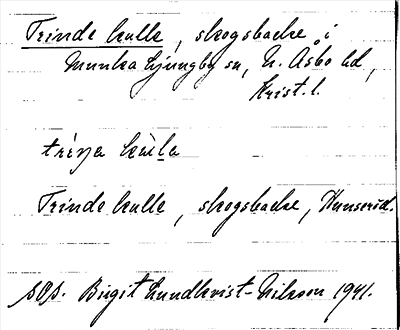 Trinde kulle, skogsbacke i
Munka Ljungby sn, N. Åsbo hd,
Krist. l.
Trinde kulle, skogsbacke, Hunseröd.
SOA. Birgit Lundkvist-Nilsson 1941.